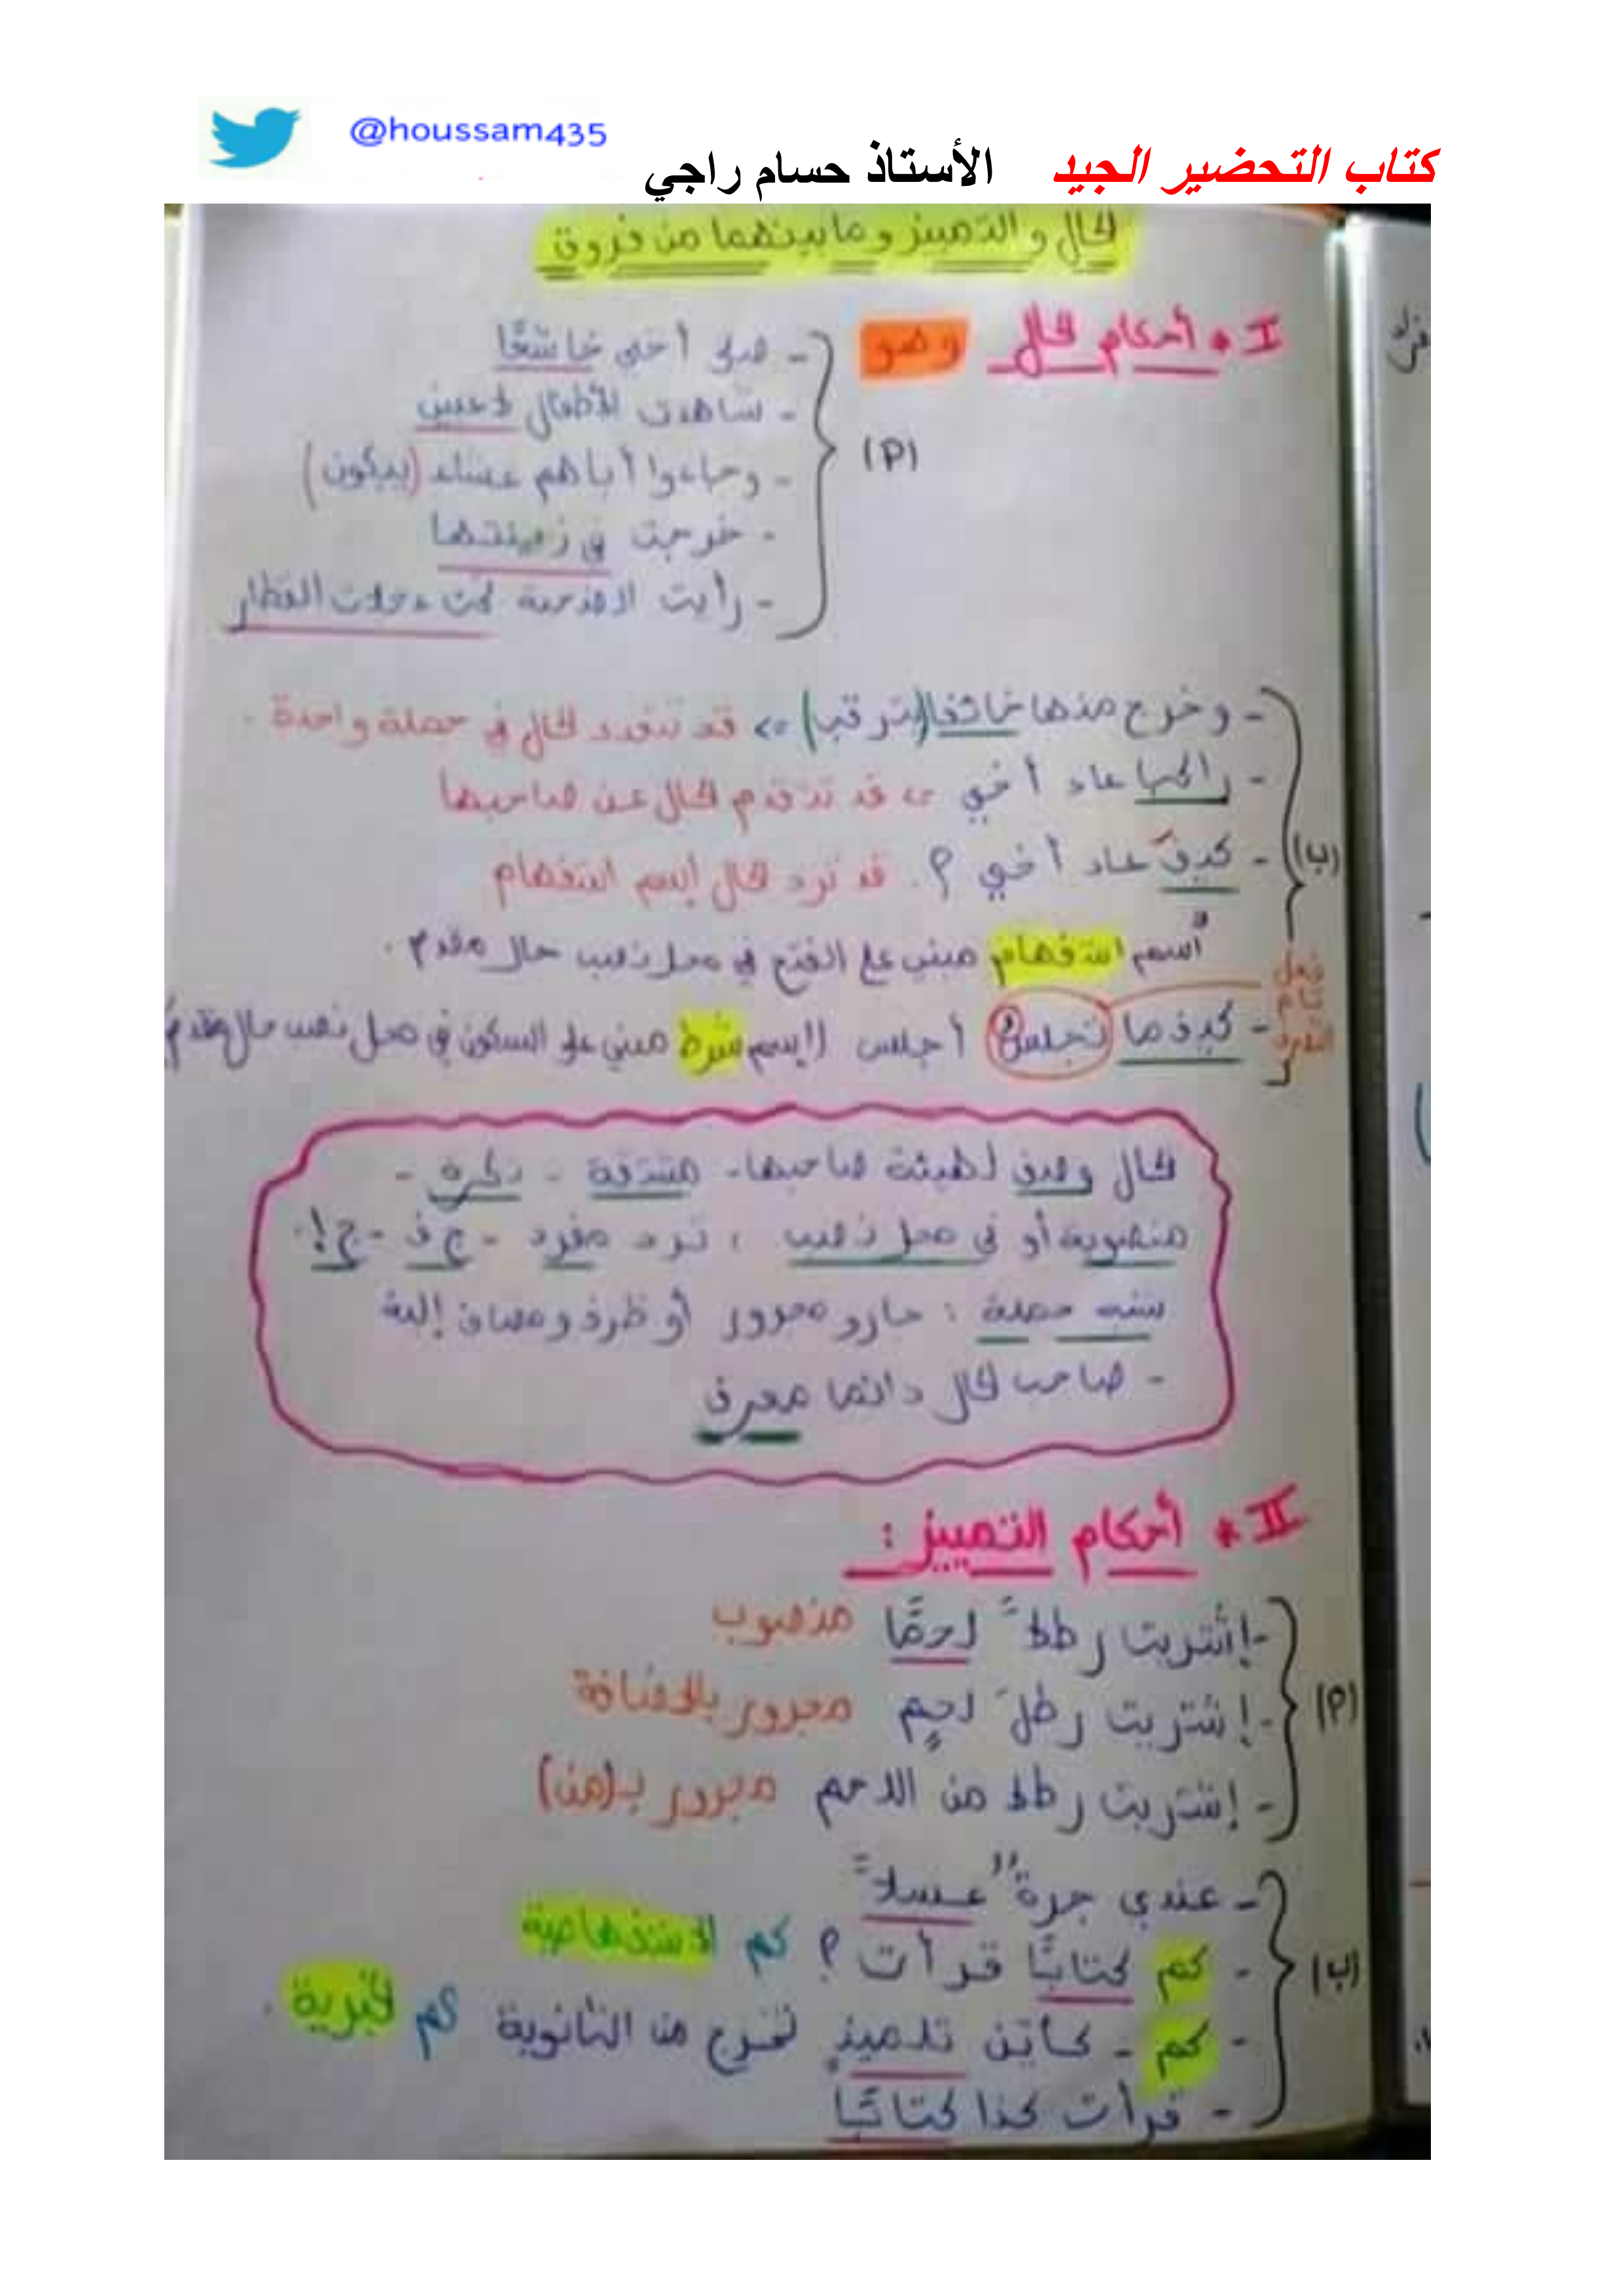 @houssam435
كتاب التحضير الجيد الأستاذ حسام راجي
الحال والتمييز وما بينهما من فروق
I * أحكام الحال وهو
(أ)
- صلى أخي خاشعًا
- شاهدت الأطفال لاعبين
- وجاءوا أباهم عشاء (يبكون)
- خرجت في زينتها
- رأيت تحت عجلات القطار
(ب)
- وخرج منها خائفا (يترقب) => قد تتعدد الحال في جملة واحدة.
- راكبا عاد أخي => قد تتقدم الحال عن صاحبها
- كيفَ عاد أخي؟. قد ترد الحال إسم استفهام
اسم استفهام مبني على الفتح في محل نصب حال مقدم.
فعل تام التصرف
- كيفما تجلسْ أجلس (اسم شرط مبني على السكون في محل نصب حال مقدم
الحال وصف لهيئة صاحبها - مشتقة - نكرة -
منصوبة أو في محل نصب ، ترد مفرد - ج ف - ج إ.
شبه جملة : جار و مجرور أو ظرف ومضاف إليه
- صاحب الحال دائما معرف
II * أحكام التمييز :
(أ)
- إشتريت رطلاً لحمًا منصوب
- إشتريت رطلَ لحمٍ مجرور بالإضافة
- إشتريت رطلا من اللحم مجرور بـ(من)
(ب)
- عندي جرةٌ عسلاً
- كم كتابًا قرأت؟ كم الاستفهامية
- كم - كأين تلميذٍ تخرج من الثانوية كم الخبرية.
- قرأت كذا كتابًا